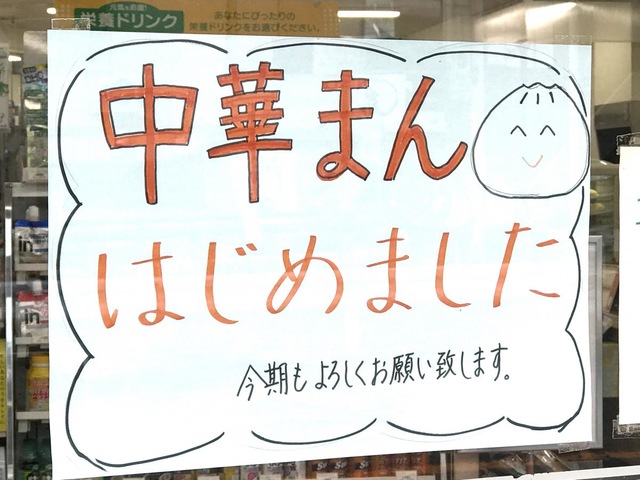 元気を応援!
栄養ドリンク
あなたにぴったりの
栄養ドリンクをお選びください。
中華まん
はじめました
今期もよろしくお願い致します。
in
in